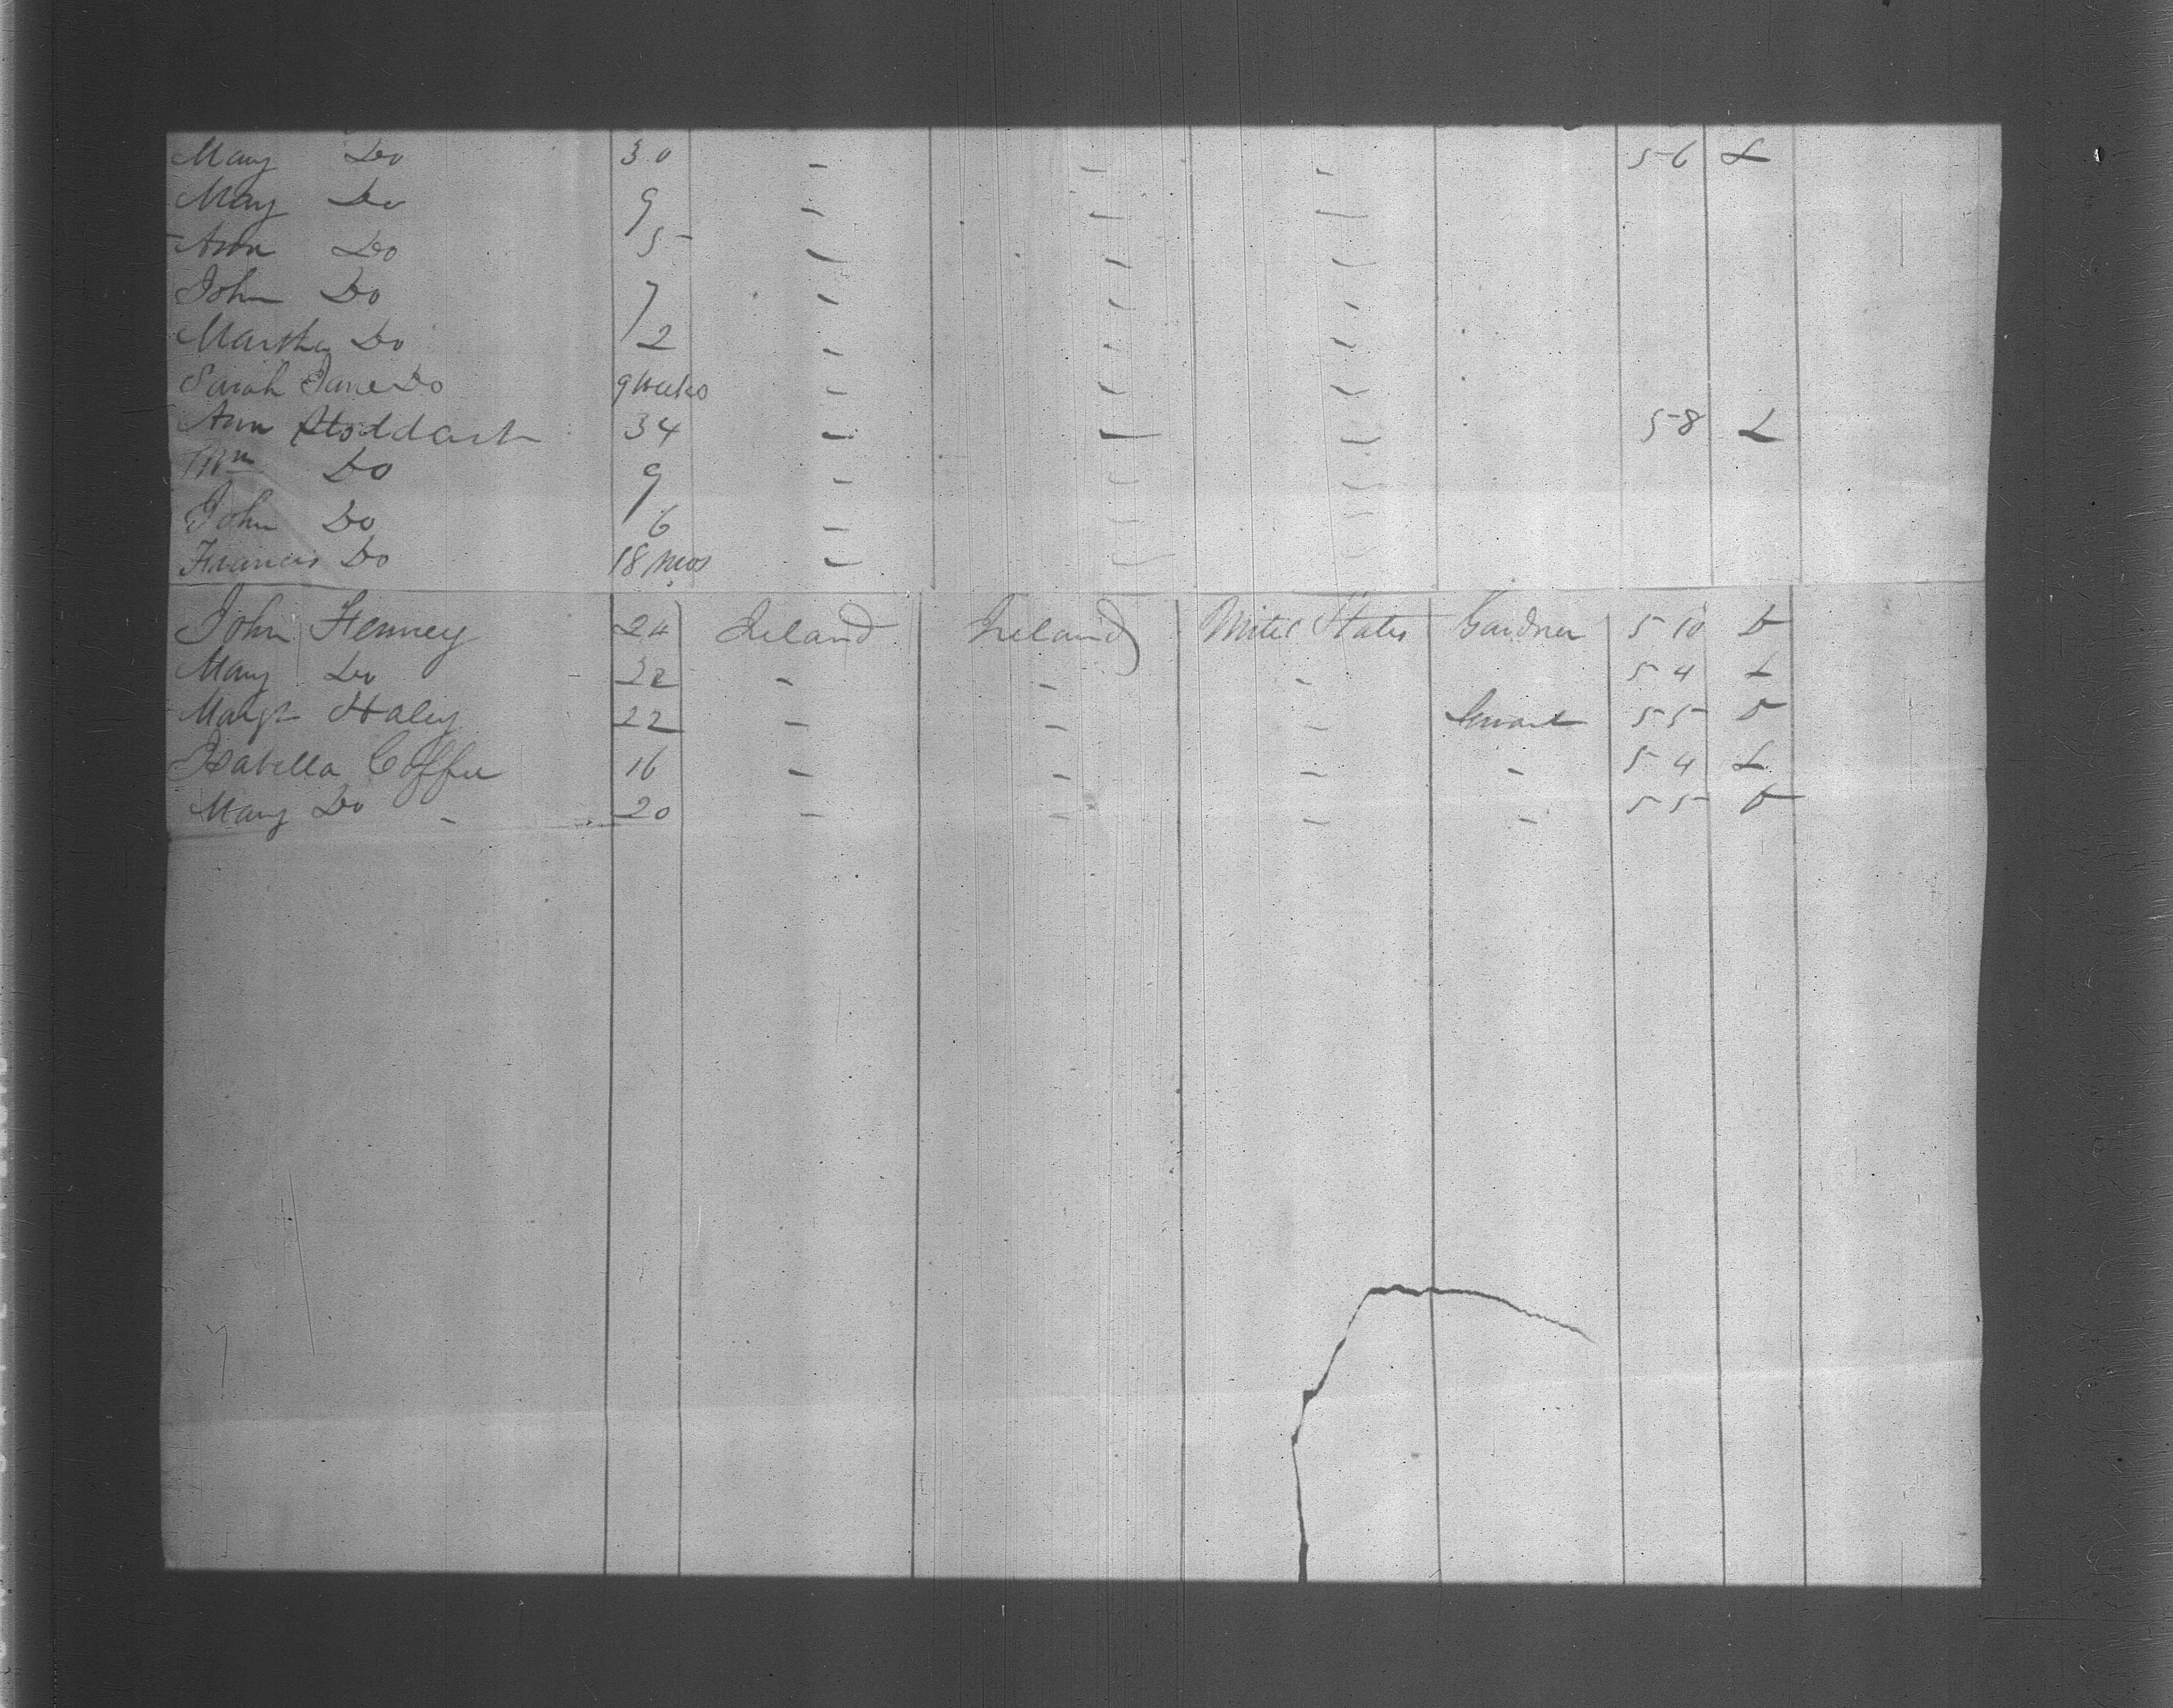 Mary Do 30 - - - 5 6 L
Mary Do 9 - - -
Ann Do 5 - - -
John Do 7 - - -
Martha Do 2 - - -
Sarah Jane Do 9 Weeks - - -
Ann Stoddart 34 - - - 5 8 L
Wm Do 9 - - -
John Do 6 - - -
Francis Do 18 Mos - - -
John Fenney 24 Ireland Ireland United States Gardner 5 10 D
Mary Do 22 - - - 5 4 L
Margt Haley 22 - - - Servant 5 5 D
Isabella Coffee 16 - - - - 5 4 L
Mary Do - 20 - - - - 5 5 D